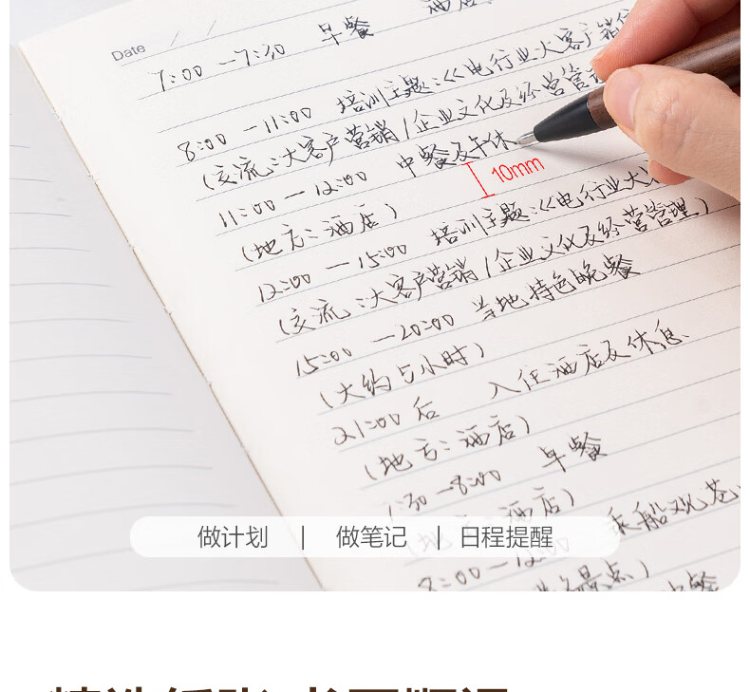 酒店
Date / /
7:00 —7:30 早餐
8:00 —11:00 培训主题:《电行业大客户销
(交流:大客户营销/企业文化及经营管
11:00 — 12:00 中餐及午休
10mm
(地点:酒店)
12:00 — 15:00 培训主题:《电行业大
(交流:大客户营销/企业文化及经营管理)
15:00 —20:00 当地特色晚餐
(大约5小时)
21:00后 入住酒店及休息
(地点:酒店)
:30 —8:00 早餐
酒店) 乘船观
8:00 —12:00
景点) 中餐
做计划 | 做笔记 | 日程提醒